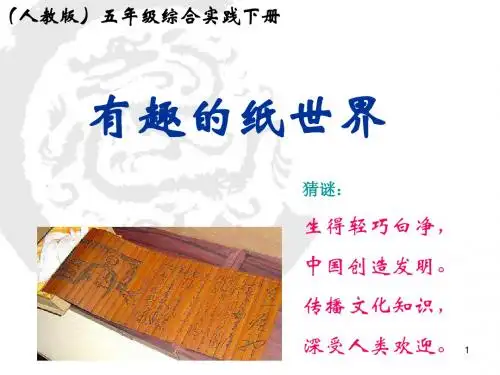 （人教版）五年级综合实践下册
有趣的纸世界
猜谜：
生得轻巧白净，
中国创造发明。
传播文化知识，
深受人类欢迎。
1